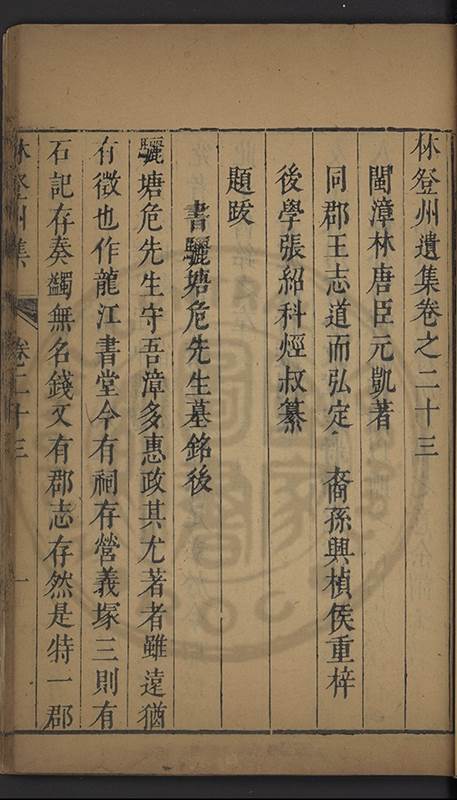 林登州遺集卷之二十三
閩漳林唐臣元凱著
同郡王志道而弘定 裔孫興楨侯重梓
後學張紹科烴叔纂
題跋
書驪塘危先生墓銘後
驪塘危先生守吾漳多惠政其尤著者雖遠猶
有徵也作龍江書堂今有祠存營義塚三則有
石記存奏蠲無名錢又有郡志存然是特一郡
林登州集 卷二十三 一